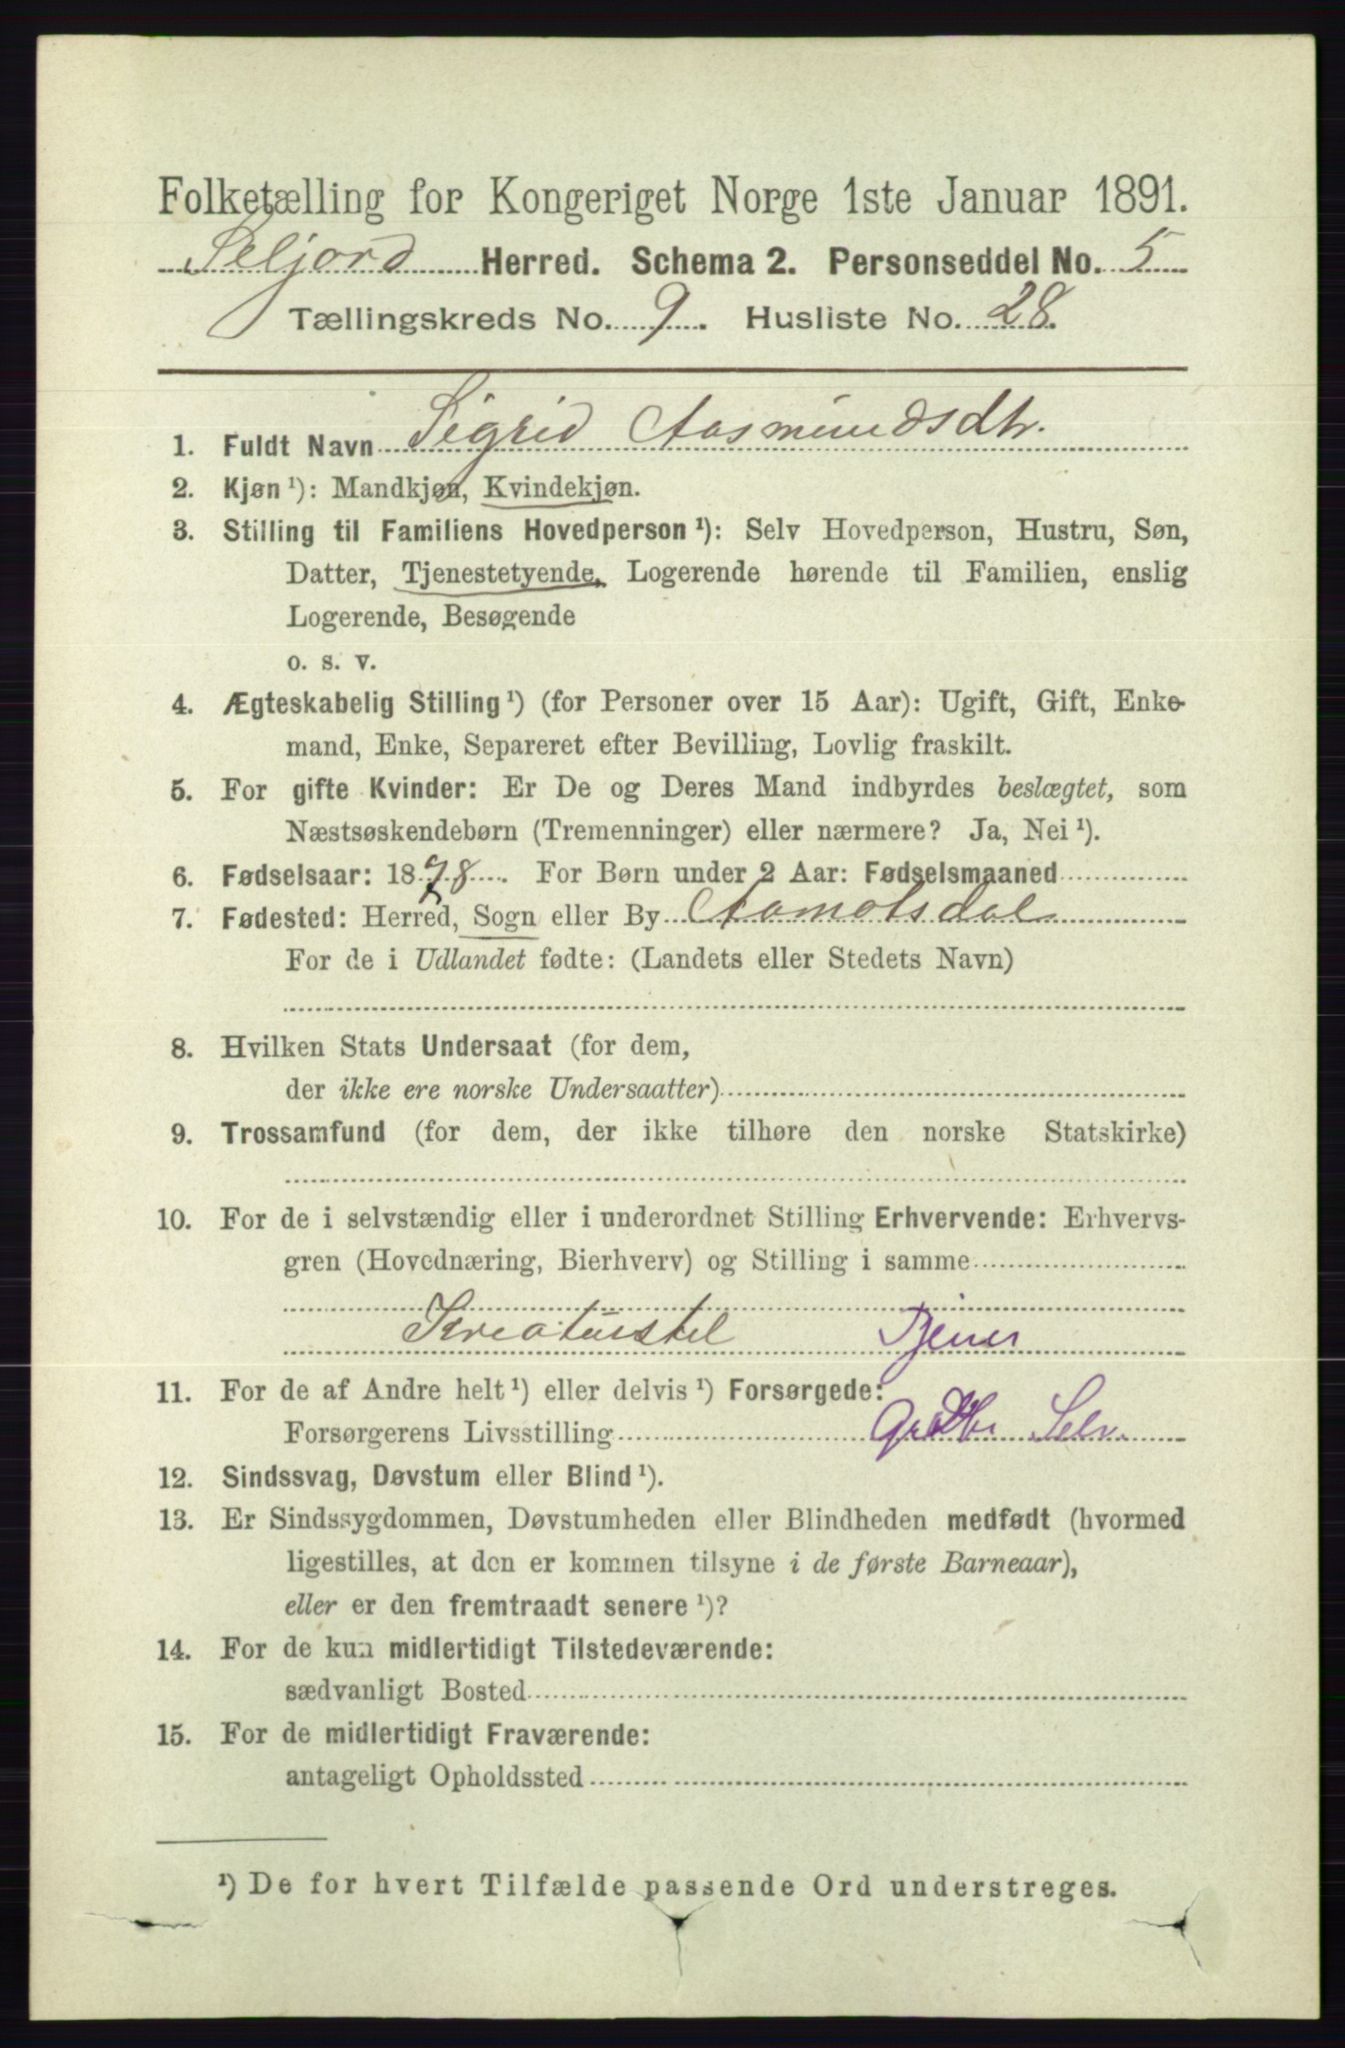 Folketælling for Kongeriget Norge 1ste Januar 1891.
Seljord Herred. Schema 2. Personseddel No. 5
Tællingskreds No. 9. Husliste No. 28.
1. Fuldt Navn Sigrid Aasmundsdtr.
2. Kjøn¹): Mandkjøn, Kvindekjøn.
3. Stilling til Familiens Hovedperson¹): Selv Hovedperson, Hustru, Søn,
Datter, Tjenestetyende, Logerende hørende til Familien, enslig
Logerende, Besøgende
o. s. v.
4. Ægteskabelig Stilling¹) (for Personer over 15 Aar): Ugift, Gift, Enke-
mand, Enke, Separeret efter Bevilling, Lovlig fraskilt.
5. For gifte Kvinder: Er De og Deres Mand indbyrdes beslægtet, som
Næstsøskendebørn (Tremenninger) eller nærmere? Ja, Nei¹).
6. Fødselsaar: 1878. For Børn under 2 Aar: Fødselsmaaned
7. Fødested: Herred, Sogn eller By Aamotsdal
For de i Udlandet fødte: (Landets eller Stedets Navn)
8. Hvilken Stats Undersaat (for dem,
der ikke ere norske Undersaatter)
9. Trossamfund (for dem, der ikke tilhøre den norske Statskirke)
10. For de i selvstændig eller i underordnet Stilling Erhvervende: Erhvervs-
gren (Hovednæring, Bierhverv) og Stilling i samme
Kreaturstel Tjener
11. For de af Andre helt¹) eller delvis¹) Forsørgede:
Forsørgerens Livsstilling Selv.
12. Sindssvag, Døvstum eller Blind¹).
13. Er Sindssygdommen, Døvstumheden eller Blindheden medfødt (hvormed
ligestilles, at den er kommen tilsyne i de første Barneaar),
eller er den fremtraadt senere¹)?
14. For de kun midlertidigt Tilstedeværende:
sædvanligt Bosted
15. For de midlertidigt Fraværende:
antageligt Opholdssted
¹) De for hvert Tilfælde passende Ord understreges.